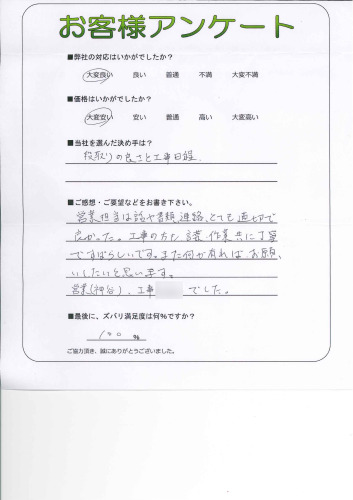 お客様アンケート
■弊社の対応はいかがでしたか?
大変良い 良い 普通 不満 大変不満
■価格はいかがでしたか?
大変安い 安い 普通 高い 大変高い
■当社を選んだ決め手は?
段取りの良さと工事日程.
■ご感想・ご要望などをお書き下さい。
営業担当は話や書類、連絡、とても適切で
良かった。工事の方も 作業共に丁寧
ですばらしいです。また何か有ればお願
いしたいと思います。
営業(神谷)、工事 でした。
■最後に、ズバリ満足度は何%ですか?
100 %
ご協力頂き、誠にありがとうございました。